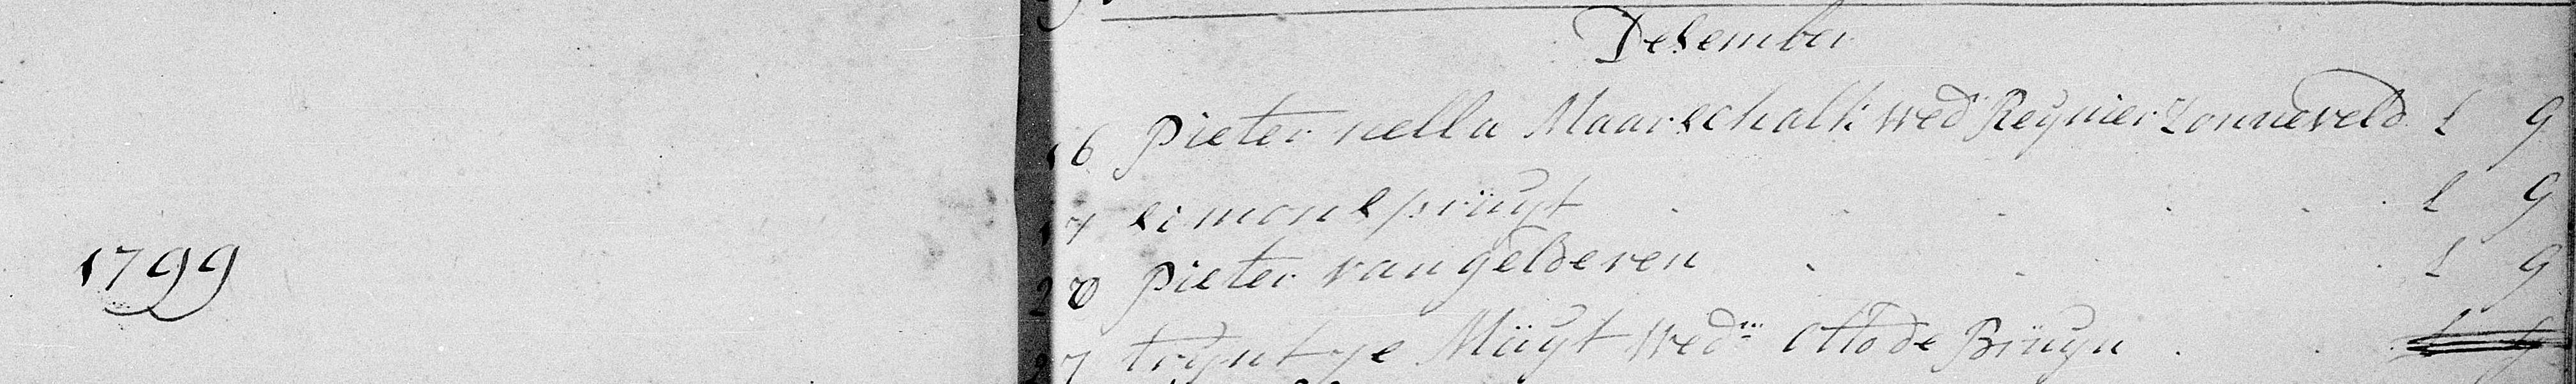 Desember
16 Pieter nella Maarschalk wed Reynier Zonneveld L G
17 simon spruyt . . . . . . L G
20 Pieter van gelderen . . . L G
1799
27 tryntye Müyt Wed Otto de Brüyn . . L G